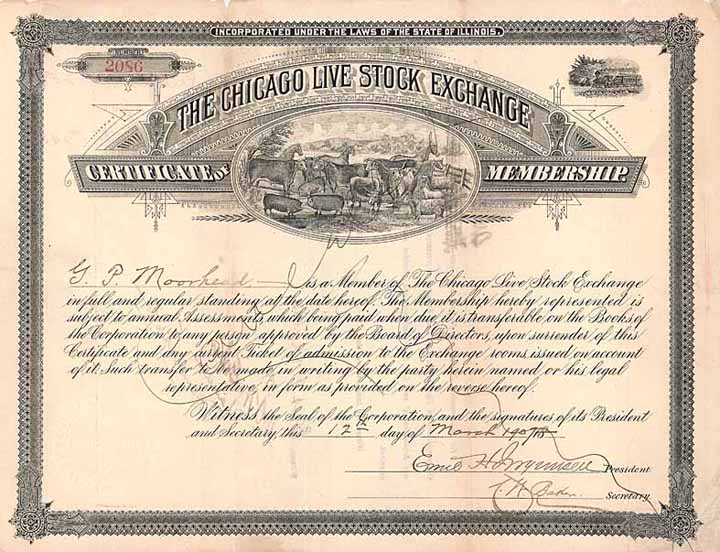 INCORPORATED UNDER THE LAWS OF THE STATE OF ILLINOIS.
NUMBER
2086
THE CHICAGO LIVE STOCK EXCHANGE
CERTIFICATE OF MEMBERSHIP.
G. P. Moorhead is a Member of The Chicago Live Stock Exchange
in full and regular standing at the date hereof. The Membership hereby represented is
subject to annual Assessments, which being paid when due, it is transferable on the Books of
the Corporation to any person approved by the Board of Directors, upon surrender of this
Certificate and any current Ticket of admission to the Exchange rooms issued on account
of it. Such transfer to be made in writing by the party herein named or his legal
representative, in form as provided on the reverse hereof.
Witness the Seal of the Corporation and the signatures of its President
and Secretary this 12th day of March
President
Secretary.